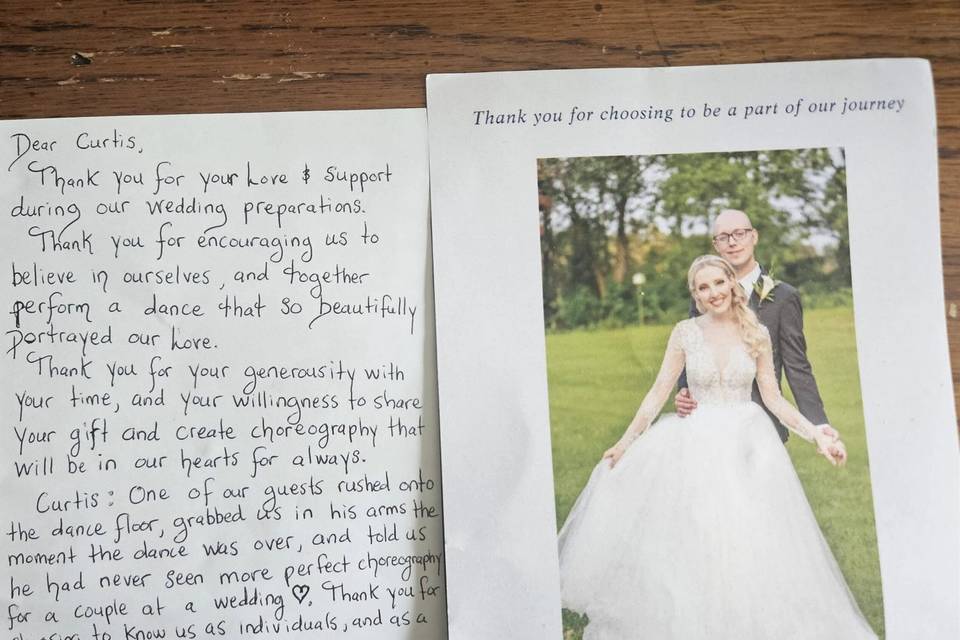 Dear Curtis,
Thank you for your Love & Support
during our wedding preparations.
Thank you for encouraging us to
believe in ourselves, and together
perform a dance that so beautifully
portrayed our Love.
Thank you for your generousity with
your time, and your willingness to share
your gift and create choreography that
will be in our hearts for always.
Curtis: One of our guests rushed onto
the dance floor, grabbed us in his arms the
moment the dance was over, and told us
he had never seen more perfect choreography
for a couple at a wedding ♡. Thank you for
to know us as individuals, and as a
Thank you for choosing to be a part of our journey